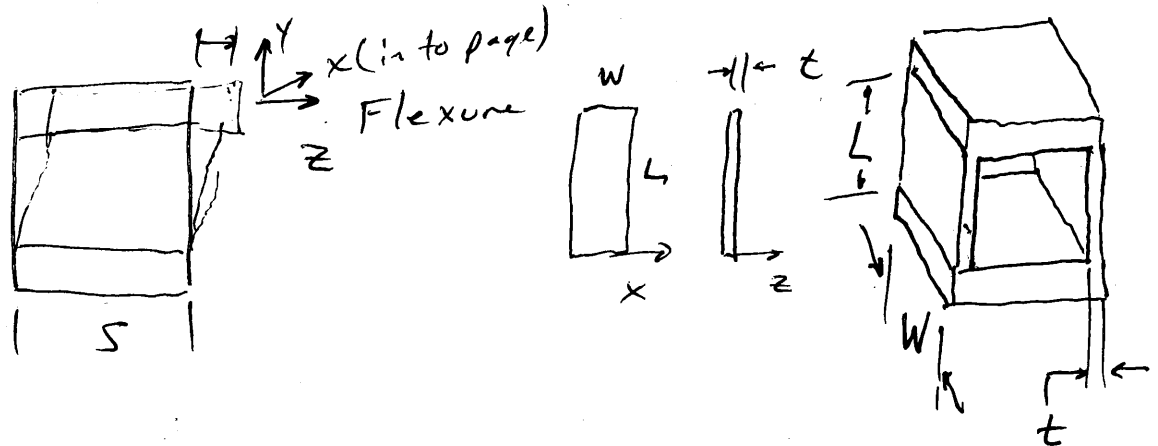 Y
x (in to page)
Flexure
Z
S
W
L
x
t
z
L
W
t